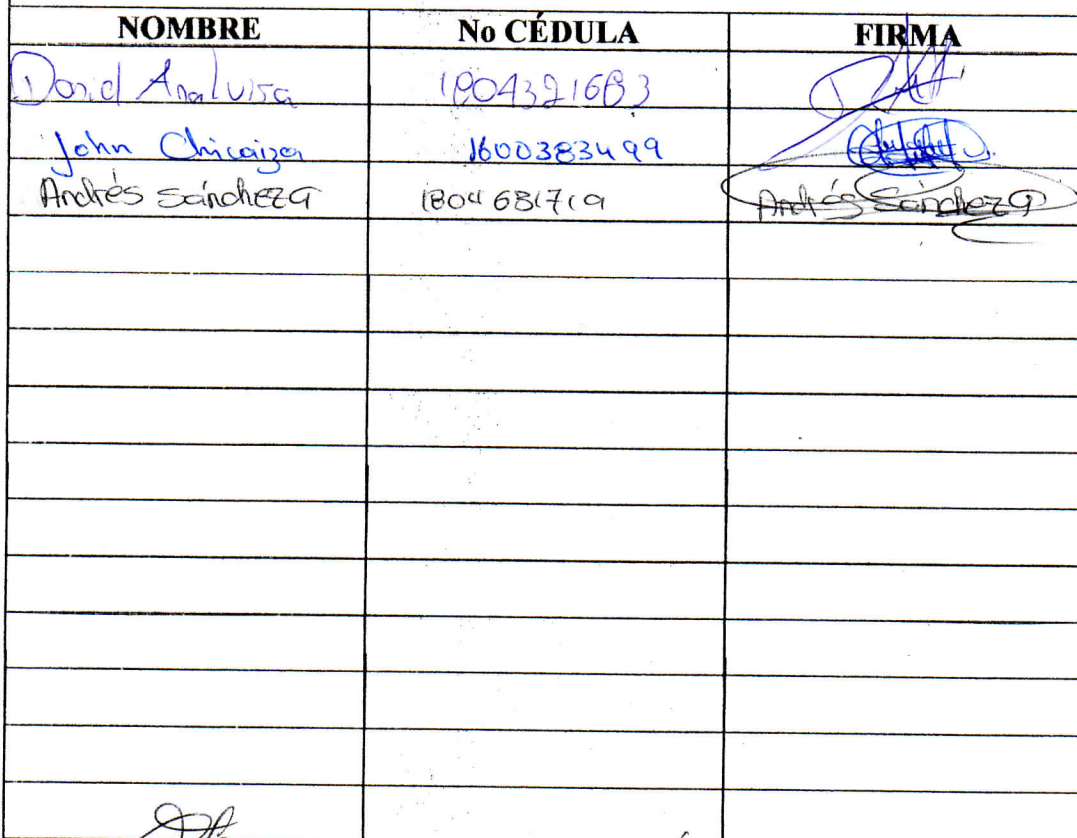 NOMBRE No CÉDULA FIRMA
David Analuisa 1804321683
John Chicaiza 1600383499
Andrés Sánchez G Andrés Sánchez G